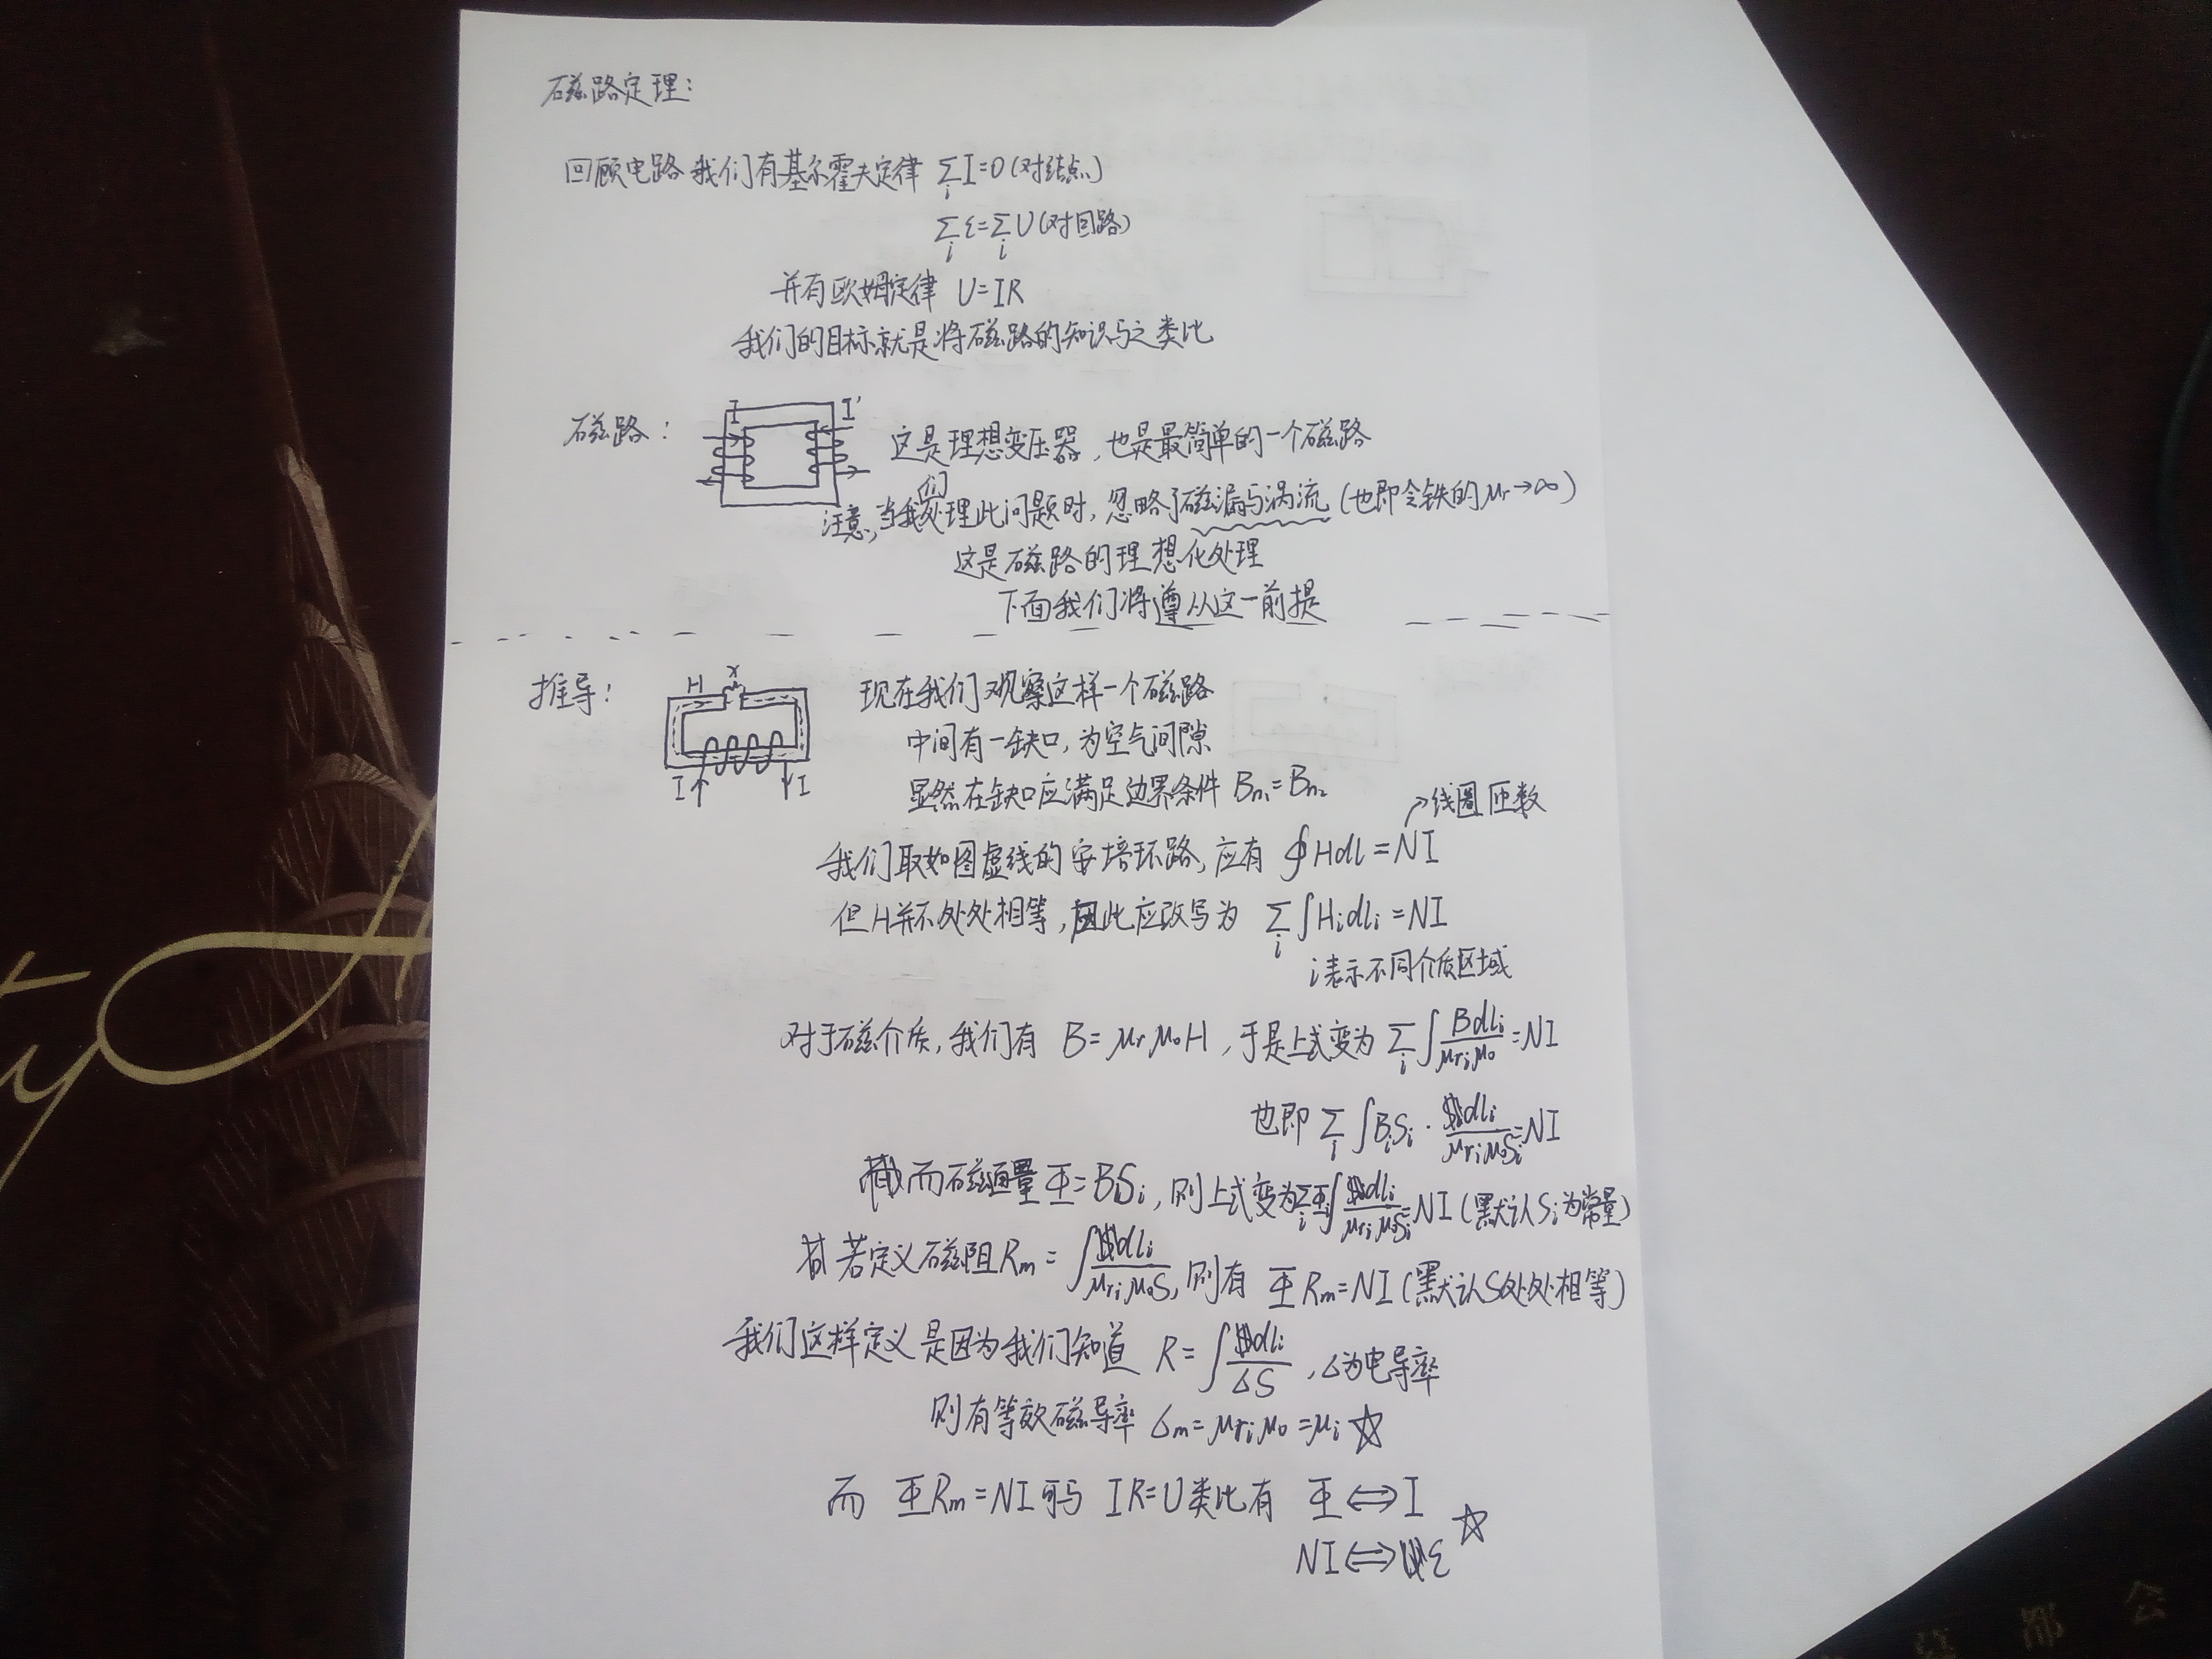 磁路定理:
回顾电路我们有基尔霍夫定律 ∑_i I=0(对结点)
∑_i ε=∑_i U(对回路)
并有欧姆定律 U=IR
我们的目标就是将磁路的知识与之类比
磁路:
I I'
这是理想变压器,也是最简单的一个磁路
注意,当我们处理此问题时,忽略了磁漏与涡流(也即令铁的μr→∞)
这是磁路的理想化处理
下面我们将遵从这一前提
推导:
H x
I I
现在我们观察这样一个磁路
中间有一缺口,为空气间隙
显然在缺口应满足边界条件 Bn₁=Bn₂
→线圈匝数
我们取如图虚线的安培环路,应有 ∮Hdl=NI
但H并不处处相等,因此应改写为 ∑_i ∫Hidli=NI
i表示不同介质区域
对于磁介质,我们有 B=μrμ₀H,于是上式变为 ∑_i ∫Bdli/(μriμ₀)=NI
也即 ∑_i ∫BiSi·dli/(μriμ₀Si)=NI
而磁通量Φ=BiSi,则上式变为∑_i Φi∫dli/(μriμ₀Si)=NI(默认Si为常量)
若定义磁阻Rm=∫dli/(μriμ₀S),则有 ΦRm=NI(默认S处处相等)
我们这样定义是因为我们知道 R=∫dli/(σS),σ为电导率
则有等效磁导率 σm=μriμ₀=μi ☆
而 ΦRm=NI可与 IR=U类比有 Φ⇔I
NI⇔ε ☆
都 会